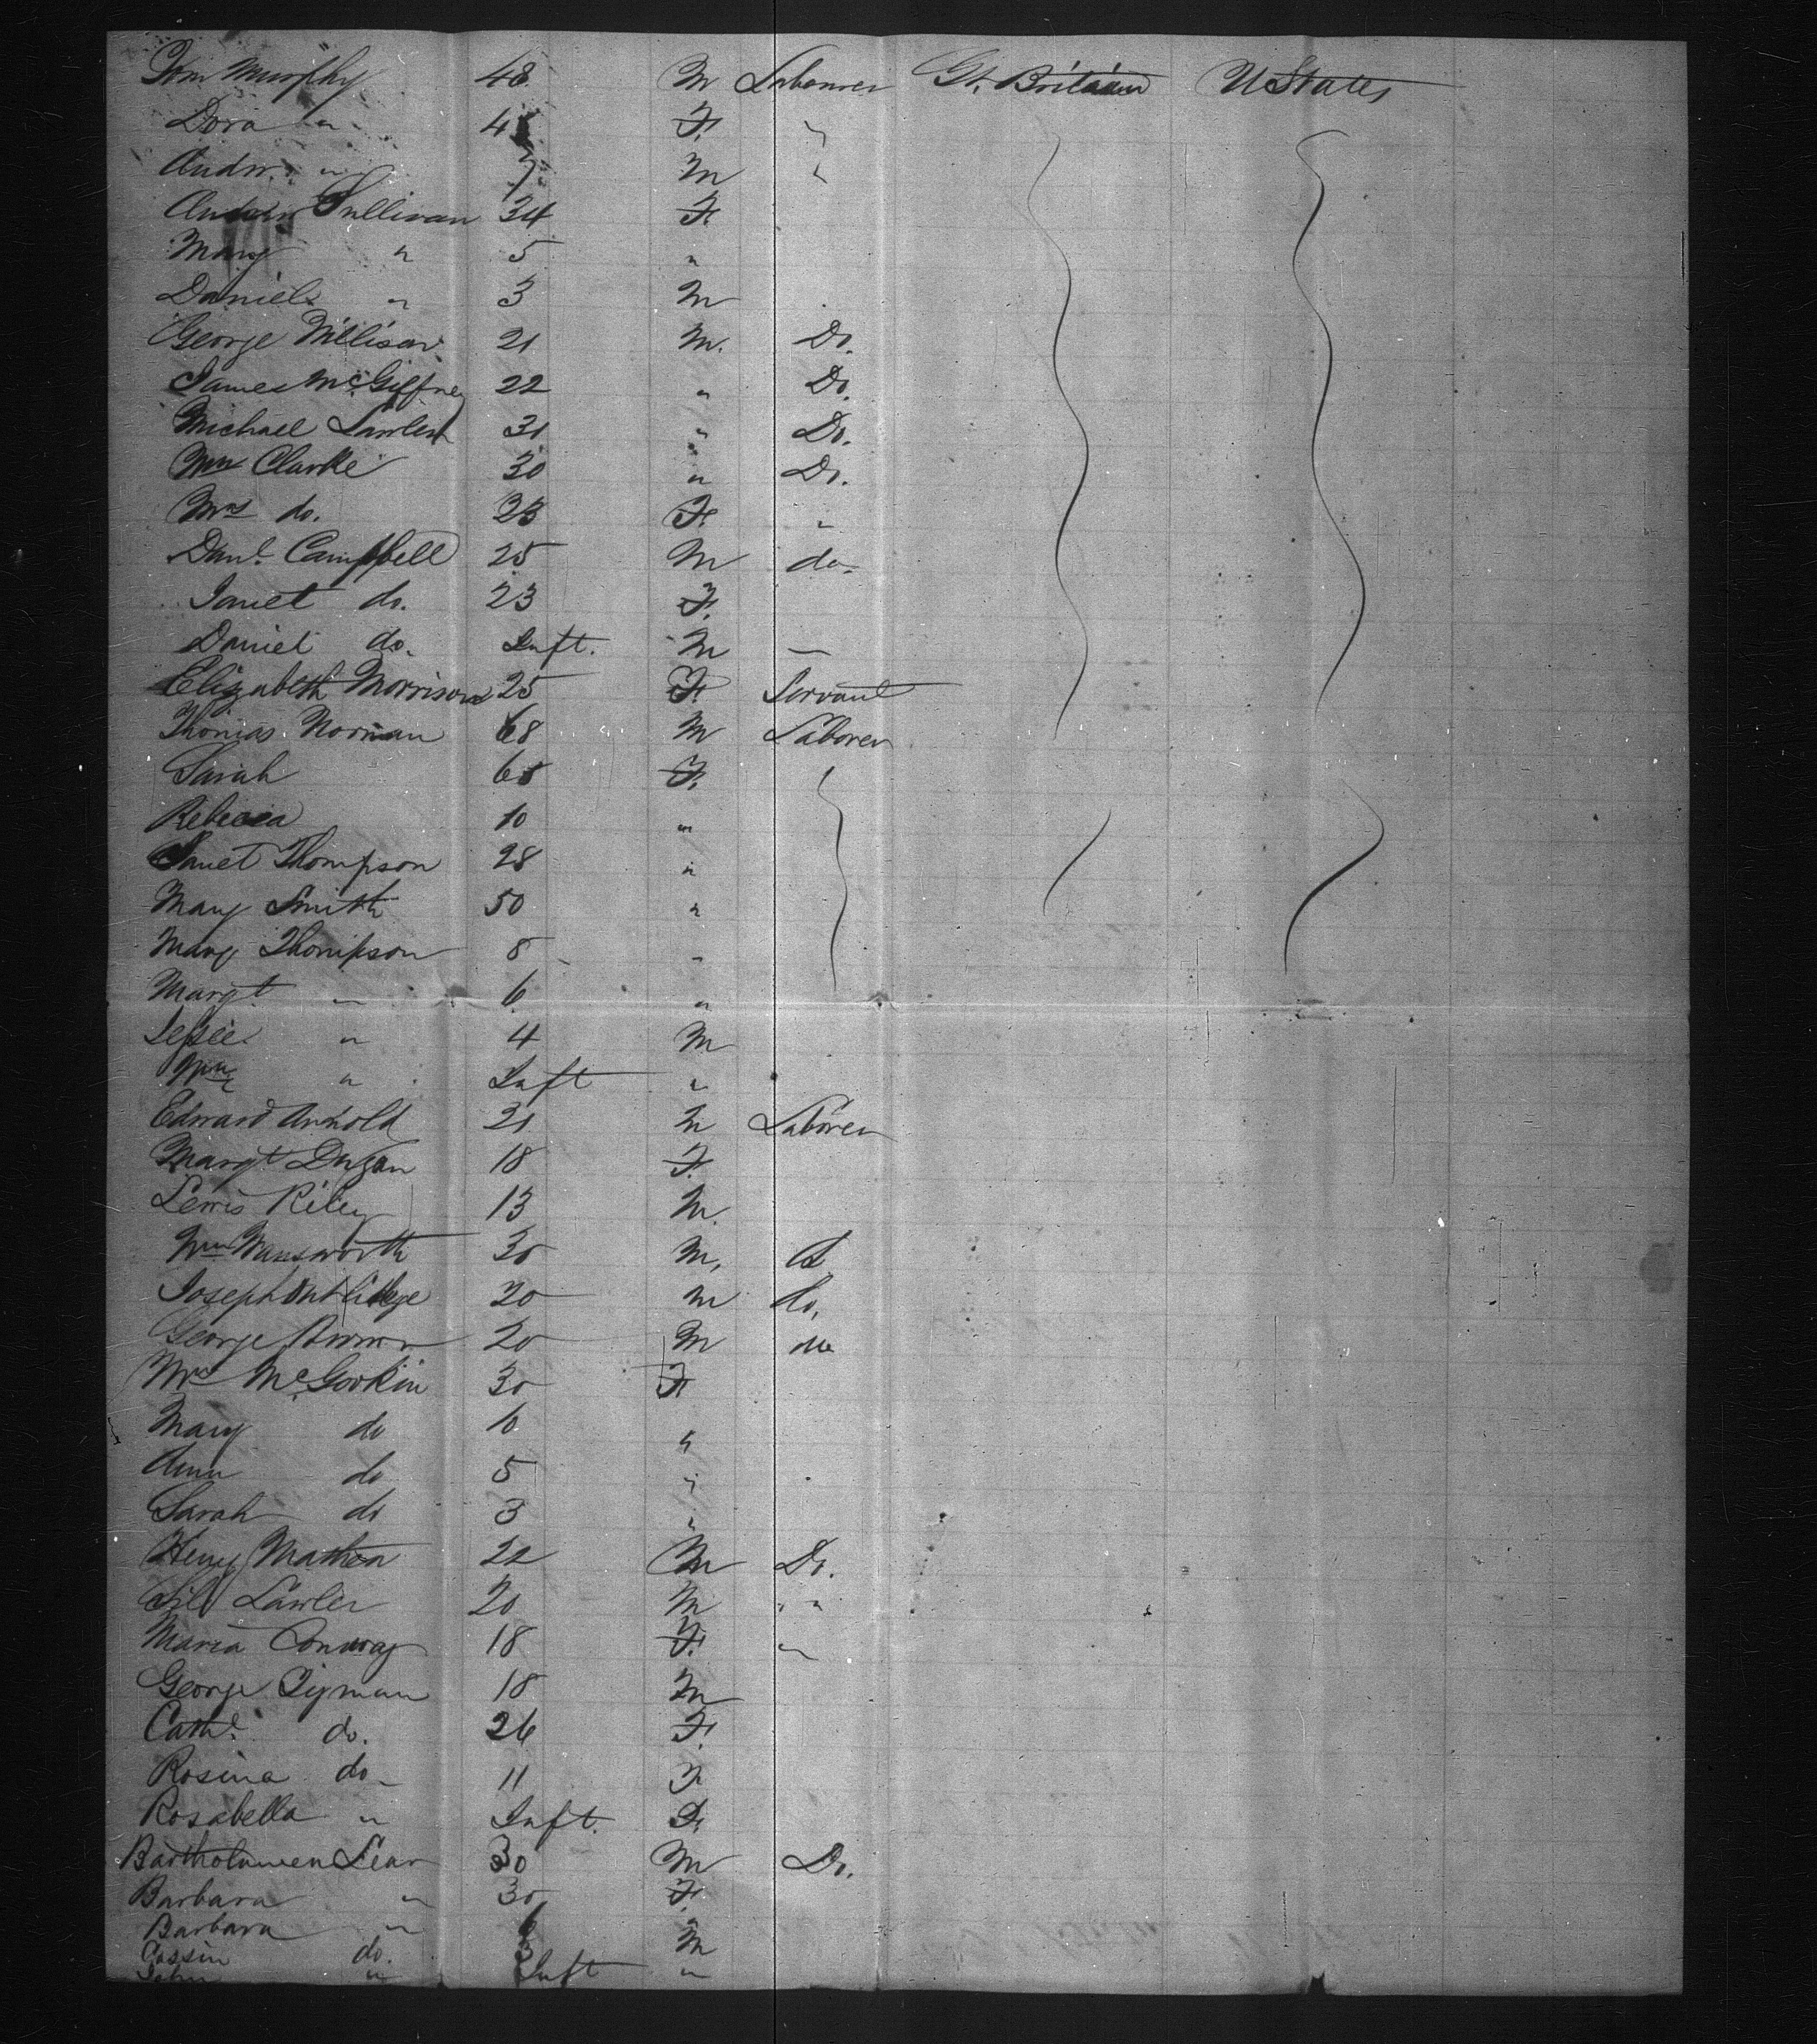 Tom Murphy 48 M Labourer Gt. Britain U States
Dora " 4 F. "
Andw. " 7 M "
Sullivan 34 F.
Mary " 5 "
Daniel " 3 M
George 21 M. Do.
James McGiffney 22 " Do.
Michael Lawler 31 " Do.
Wm Clarke 30 " Do.
Mrs do. 23 F. "
Danl. Campbell 25 M do.
Janet do. 23 F.
Daniel do. Inft. M —
Elizabeth Morrison 25 F. Servant
Thomas Norman 68 M Laborer
Sarah 68 F.
Rebecca 10 "
Janet Thompson 28 "
Mary Smith 50 "
Mary Thompson 8 "
Margt " 6 "
" 4 M
Wm " Inft "
Edward Arnold 21 M Laborer
Margt Dugan 18 F.
Lewis Riley 13 M.
Wm Wansworth 30 M, do
Joseph 20 M do,
George Brown 20 M do
Mrs McGorkin 30 F
Mary do 10 "
Ann do 5 "
Sarah do 3 "
Henry 22 M Do.
Lawler 20 M "
Maria Conway 18 F. "
George 18 M
Cathe. do. 26 F.
Rosina do 11 F
Rosabella " Inft. F.
Bartholomew Lear 30 M Do.
Barbara " 30 F.
Barbara " 6 "
do. 3 M
John " Inft "